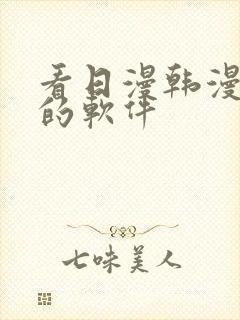 看日漫韩漫
的軟件
七味美人